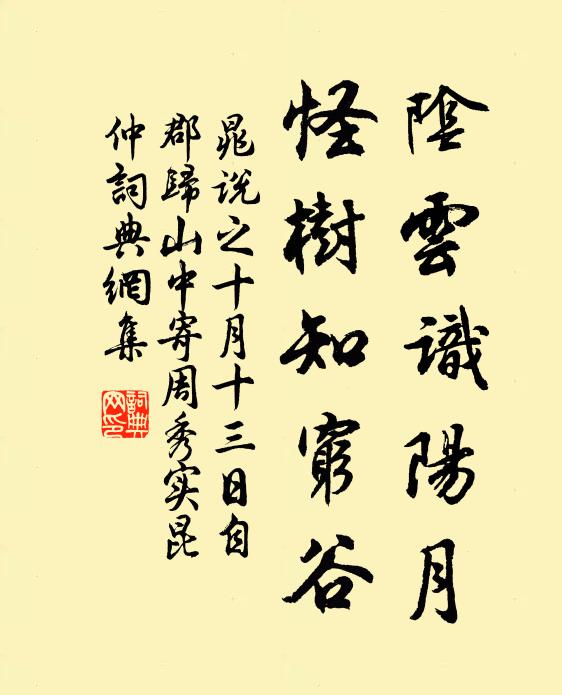 陰雲識陽月
怪樹知窮谷
晁说之十月十三日自
郡歸山中寄周秀实昆
仲詞典網集
詞典网印